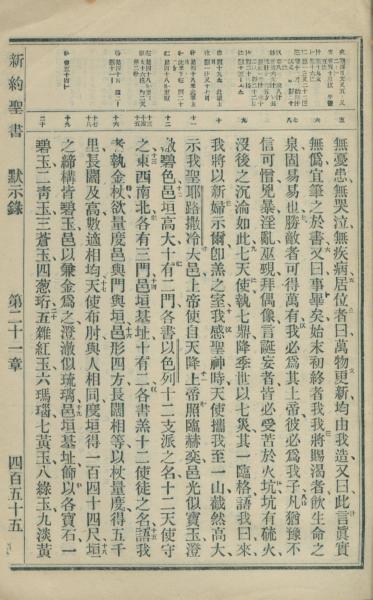 新約聖書 默示錄 第二十一章 四百五十五
無憂患無哭泣無疾病居位者曰萬物更新均由我造又曰此言眞實
無僞宜筆之於書又曰事畢矣始末初終者我我將賜渴者飲生命之
泉固易易也勝敵者可得萬有我必爲其上帝彼必爲我子凡猶豫不
信可憎兇暴淫亂巫覡拜偶像言誕妄者皆必受苦於火坑坑有硫火
沒後之沉淪如此七天使執七鼎降季世以七災其一臨格語我曰來
我將以新婦示爾卽羔之室我感聖神時天使攜我至一山巍然高大
示我聖耶路撒冷大邑上帝使自天降上帝照臨赫奕邑光似寶玉澄
澈碧色邑垣高大十有二門各書以色列十二支派之名十二天使守
之東西南北各有三門邑垣基址十有二各書羔十二使徒之名語我
者執金杖欲量度邑與門與垣邑形四方長闊相等以杖量度得五千
里長闊及高數適相均天使布肘與人相同度垣得一百四十四尺垣
之締構皆碧玉邑以兼金爲之澄澈似琉璃邑垣基址飾以各寶石一
碧玉二靑玉三蒼玉四葱珩五雜紅玉六瑪瑙七黃玉八綠玉九淡黃